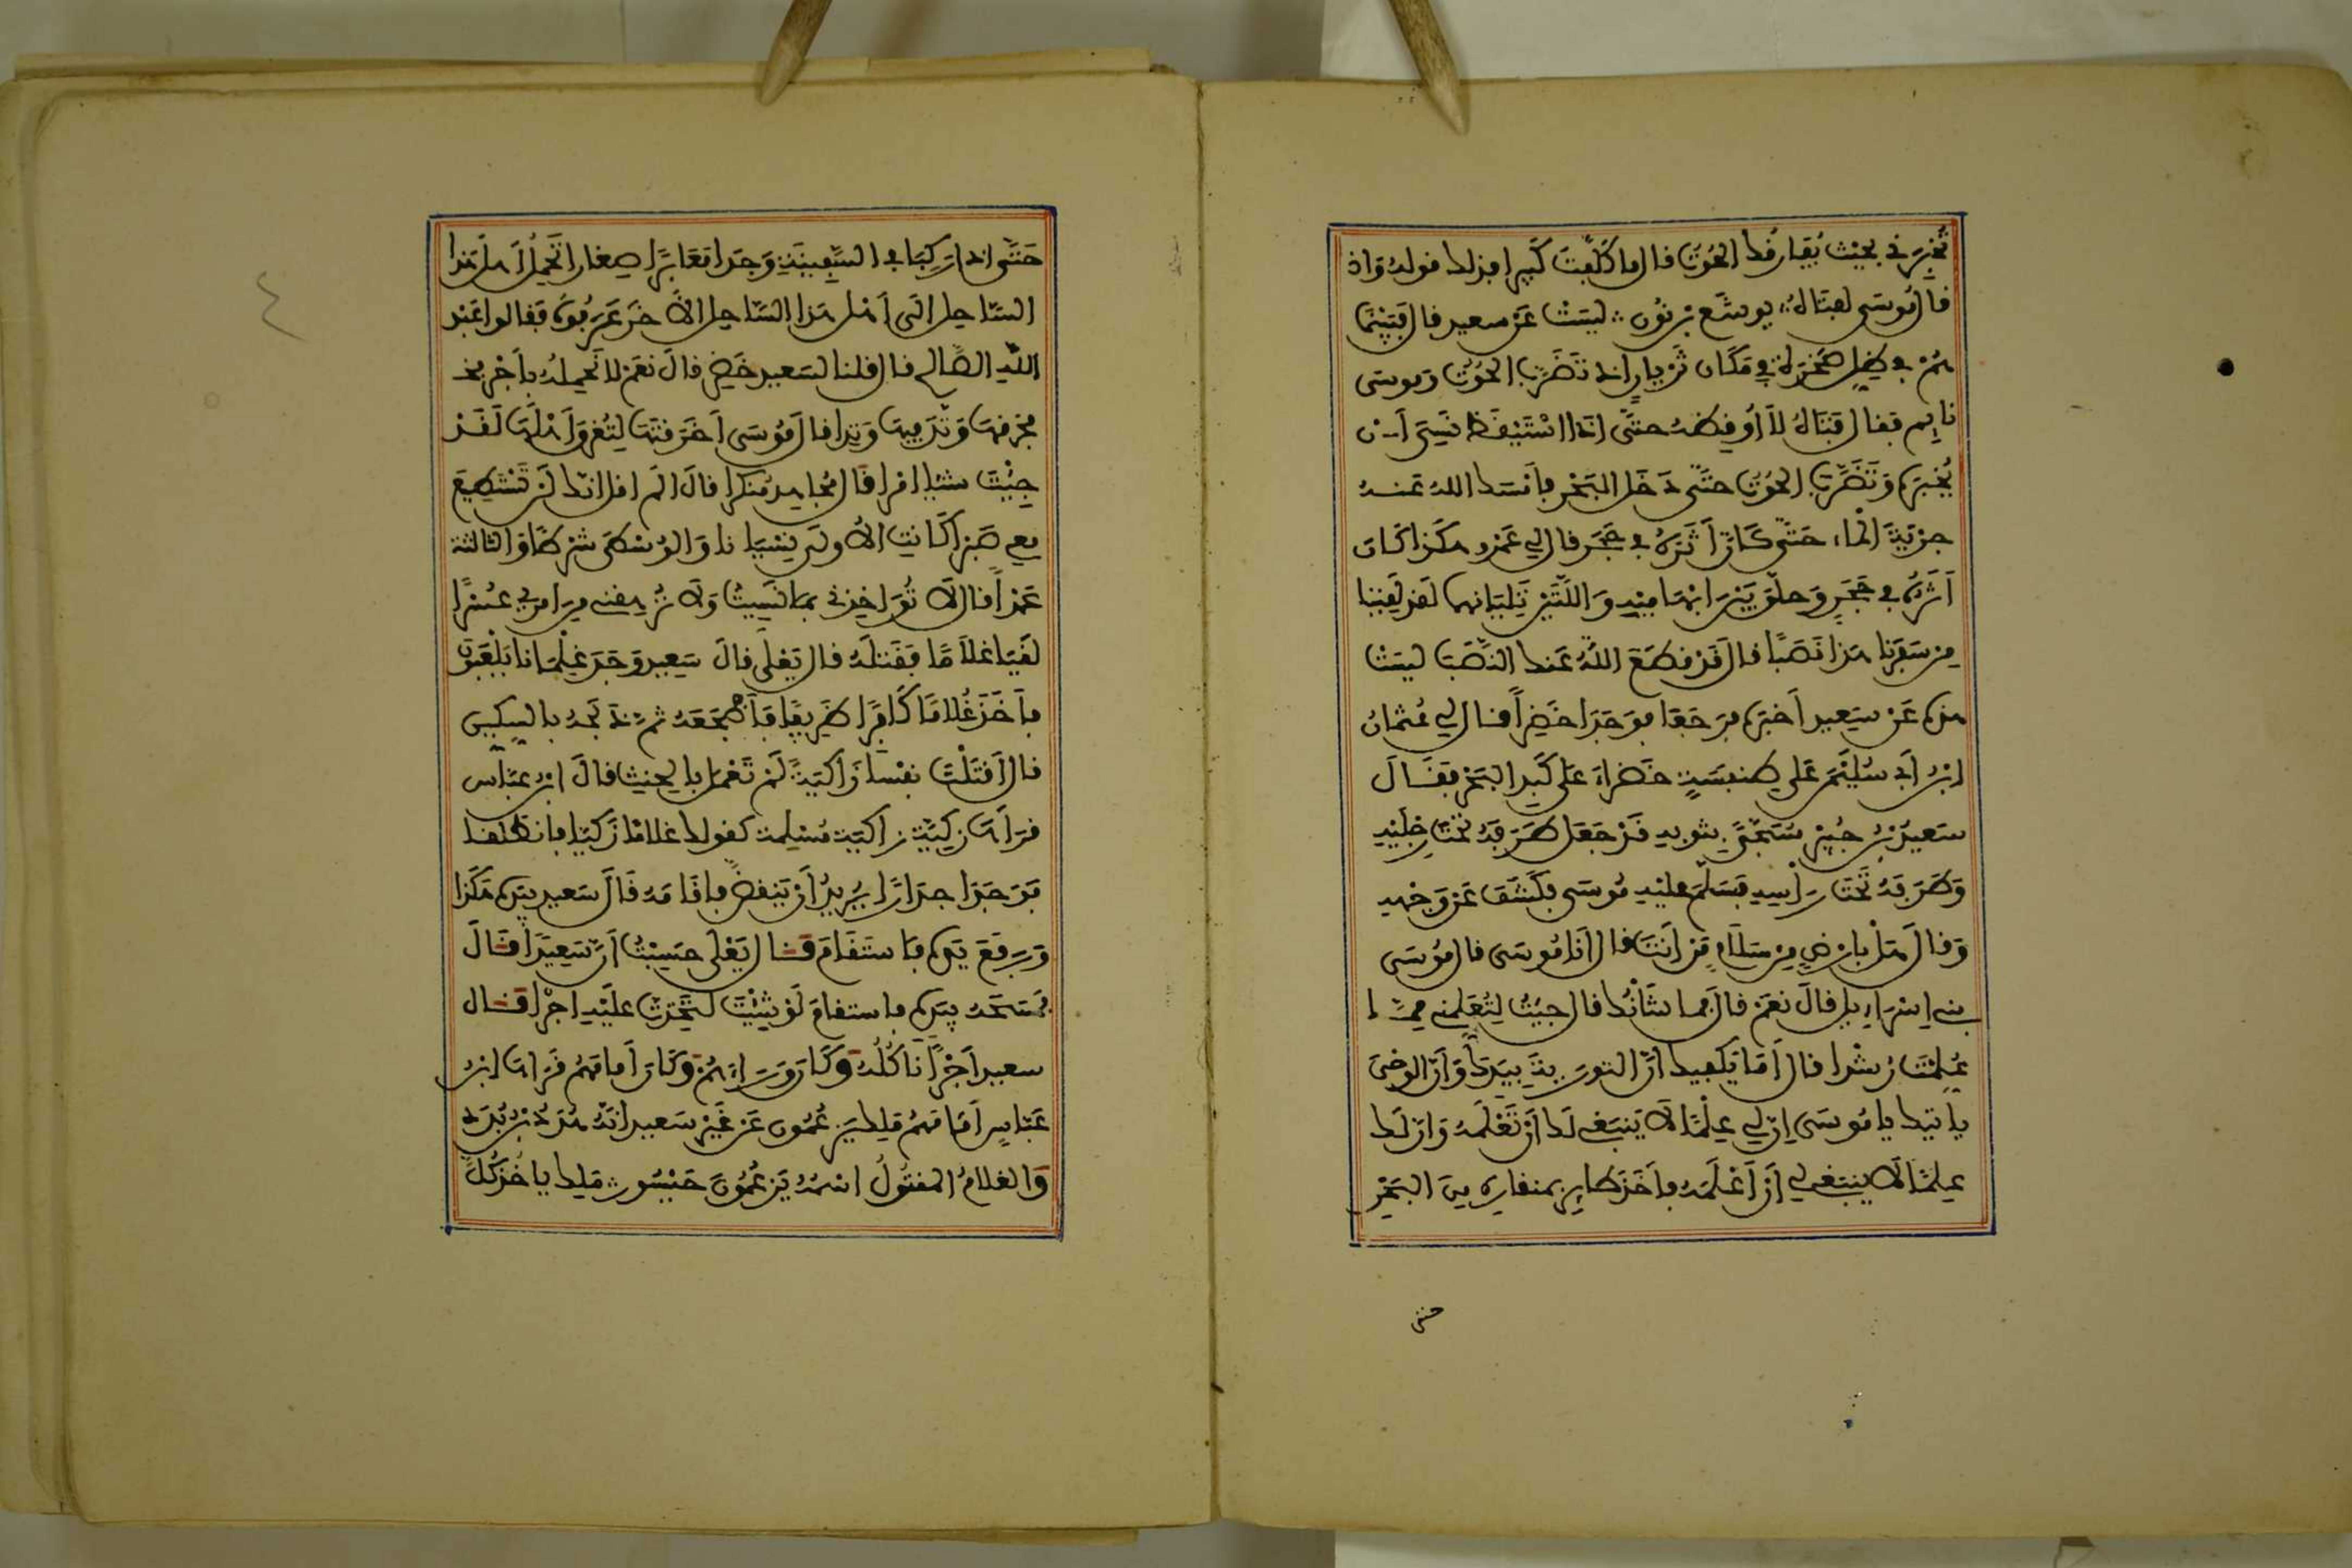 تُخْبِرَنِي بحَيْث يُفَارِقُك الحُوتُ فال ما كَلَّفْتَ كَبِيرا فذلك فوله وَاذ
فَالَ مُوسَى لِفتَاهُ يوشَع بْن نُون ليست عَن سعيد فال فَبَيْنَمَا
هُوَ في ظِلِّ صَخْرَة في مَكَان ثَرْيان اذ تَضَرَّبَ الحُوتُ وَموسَى
نايم ففال فَتَاهُ لَا أُوفِظه حتَّى اذَا اسْتَيْفَظ نَسِيَ أَن
يُخْبِرَه وَتَضَرَّبَ الحُوتُ حتَّى دَخَلَ البَحْر فأمْسَك الله عَنه
جِرْيَةَ الْماء حَتَّى كَأَنَّ أَثَرَهُ في حَجَر فال لي عَمْرو هكَذا كَأن
أَثَرَهُ في حَجَرٍ وَحلَّقَ بَيْنَ ابْهَامَيْهِ وَاللَّتَيْنِ تَلِيَانِهما لفد لَفِينَا
مِن سَفَرِنَا هَذا نَصَبًا فال فَدْ فطَعَ اللَّهُ عَنك النَّصَبَ ليسَتْ
هذه عَنْ سَعِيد أَخْبَرَه فرَجَعَا فوَجَدَا خَضِراً فال لي عُثمَانُ
ابْنُ أبي سُلَيْمَن عَلى طِنفِسَةٍ خَضْراءَ عَلى كَبِدِ البَحْر ففَالَ
سَعِيدُ بْنُ جُبَيْر مُسَجًّى بِثَوبِه فَدْ جَعَل طَرَفَهُ تَحْتَ رِجْلَيْهِ
وَطَرَفَهُ تَحْتَ رَأْسِهِ فَسَلَّمَ عَلَيْهِ مُوسَى فكَشَفَ عَن وَجْهِهِ
وَفالَ هَلْ بأرْضِي مِن سَلَامٍ مَن أَنتَ فال أنَا مُوسَى فال مُوسَى
بني إسْرَاءيلَ فالَ نعَمْ فالَ فما شَأْنُك فال جِيتُ لِتُعَلِّمَنِي مِمَّا
عُلِّمْتَ رُشْدا فال أَمَا يَكفِيك أنَّ التورَيةَ بيَدِك وَأنَّ الوَحْيَ
يأتِيك يا مُوسَى إنَّ لي عِلْمًا لَا يَنبَغِي لك أَن تَعْلَمَه وَإنَّ لَك
عِلمًا لا ينبغي لي أن أعْلَمَه فأَخَذ طايِر بِمنفارِه مِنَ البَحْر
حتى
حَتَّى إذا رَكِبَا في السَّفِينَةِ وَجَدا مَعَابِرَ صِغارا تَحْمِلُ أهلَ هَذا
السَّاحِل إلَى أهْل هَذا السَّاحِل الآخَر عَرَفُوهُ ففالوا عَبْدُ
اللَّه الصَّالح فال فلنا لسَعيد خَضِر فالَ نعَمْ لَا نَحْمِلُه بأَجْر فخ
فخرفها وَوَتَّدَ فِيهَا وَتدا فال مُوسَى أخَرَفْتَهَا لِتُغْرِقَ أَهْلَهَا لَفَدْ
جِيْتَ شَيْئا إمْرا فَال مُجَاهِد مُنكَرا فالَ ألَم افل انّك لَن تَسْتَطِيعَ
معي صَبْرا كَانتِ الأولَى نِسْيَانا وَالوُسْطَى شَرْطًا وَالثالثَة
عَمْداً فال لَا تُوَاخِذْنِي بمَا نَسِيتُ وَلَا تُرْهِفْنِي مِن امْري عُسْرًا
لَفِيَا غلَامًا فَفَتَلَهُ فال يَعْلَى فالَ سَعِيد وَجَدَ غِلْمَانا يَلْعَبُونَ
فأَخَذ غُلامًا كَافِرًا ظَرِيفًا فأَضْجَعَه ثُمَّ ذَبَحَه بالسِّكِّينِ
فال أفَتَلْتَ نفْسًا زَاكيَةً لَمْ تَعْمَل بالحِنثِ فالَ ابن عبَّاس
فرَأَهَا زَكِيَّة زَاكيَة مُسْلِمَة كفولك غلامًا زَكيّا فانطَلَفَا
فَوَجَدَا جِدارًا يُرِيدُ أَن يَنفَضَّ فأفَامَه فَالَ سَعِيد بِيَدِه هَكَذا
وَرَفَعَ يَدَه فاستَفَامَ فَال يَعْلَى حَسِبْتُ أنَّ سَعِيدَا فَالَ
فَمَسَحَه بِيَدِه فاستفَامَ لَوْ شِئْتَ لتَّخَذْتَ عَلَيْهِ اجْرا فَال
سعيد أجْرًا نَاكُلُه وَكَانَ وَرَاءَهُمْ وَكَانَ أمَامَهُم فَرَأهَا ابْنُ
عَبَّاس أمَامَهُم مَلِك يَزْعُمُون عَن غَيْر سَعِيد أنَّهُ هُدَدُ بْنُ بُدَد
وَالغلامُ المفتُولُ اسْمُه يَزْعُمُونَ حَيْسُور مَلِك يأخُذ كُلَّ